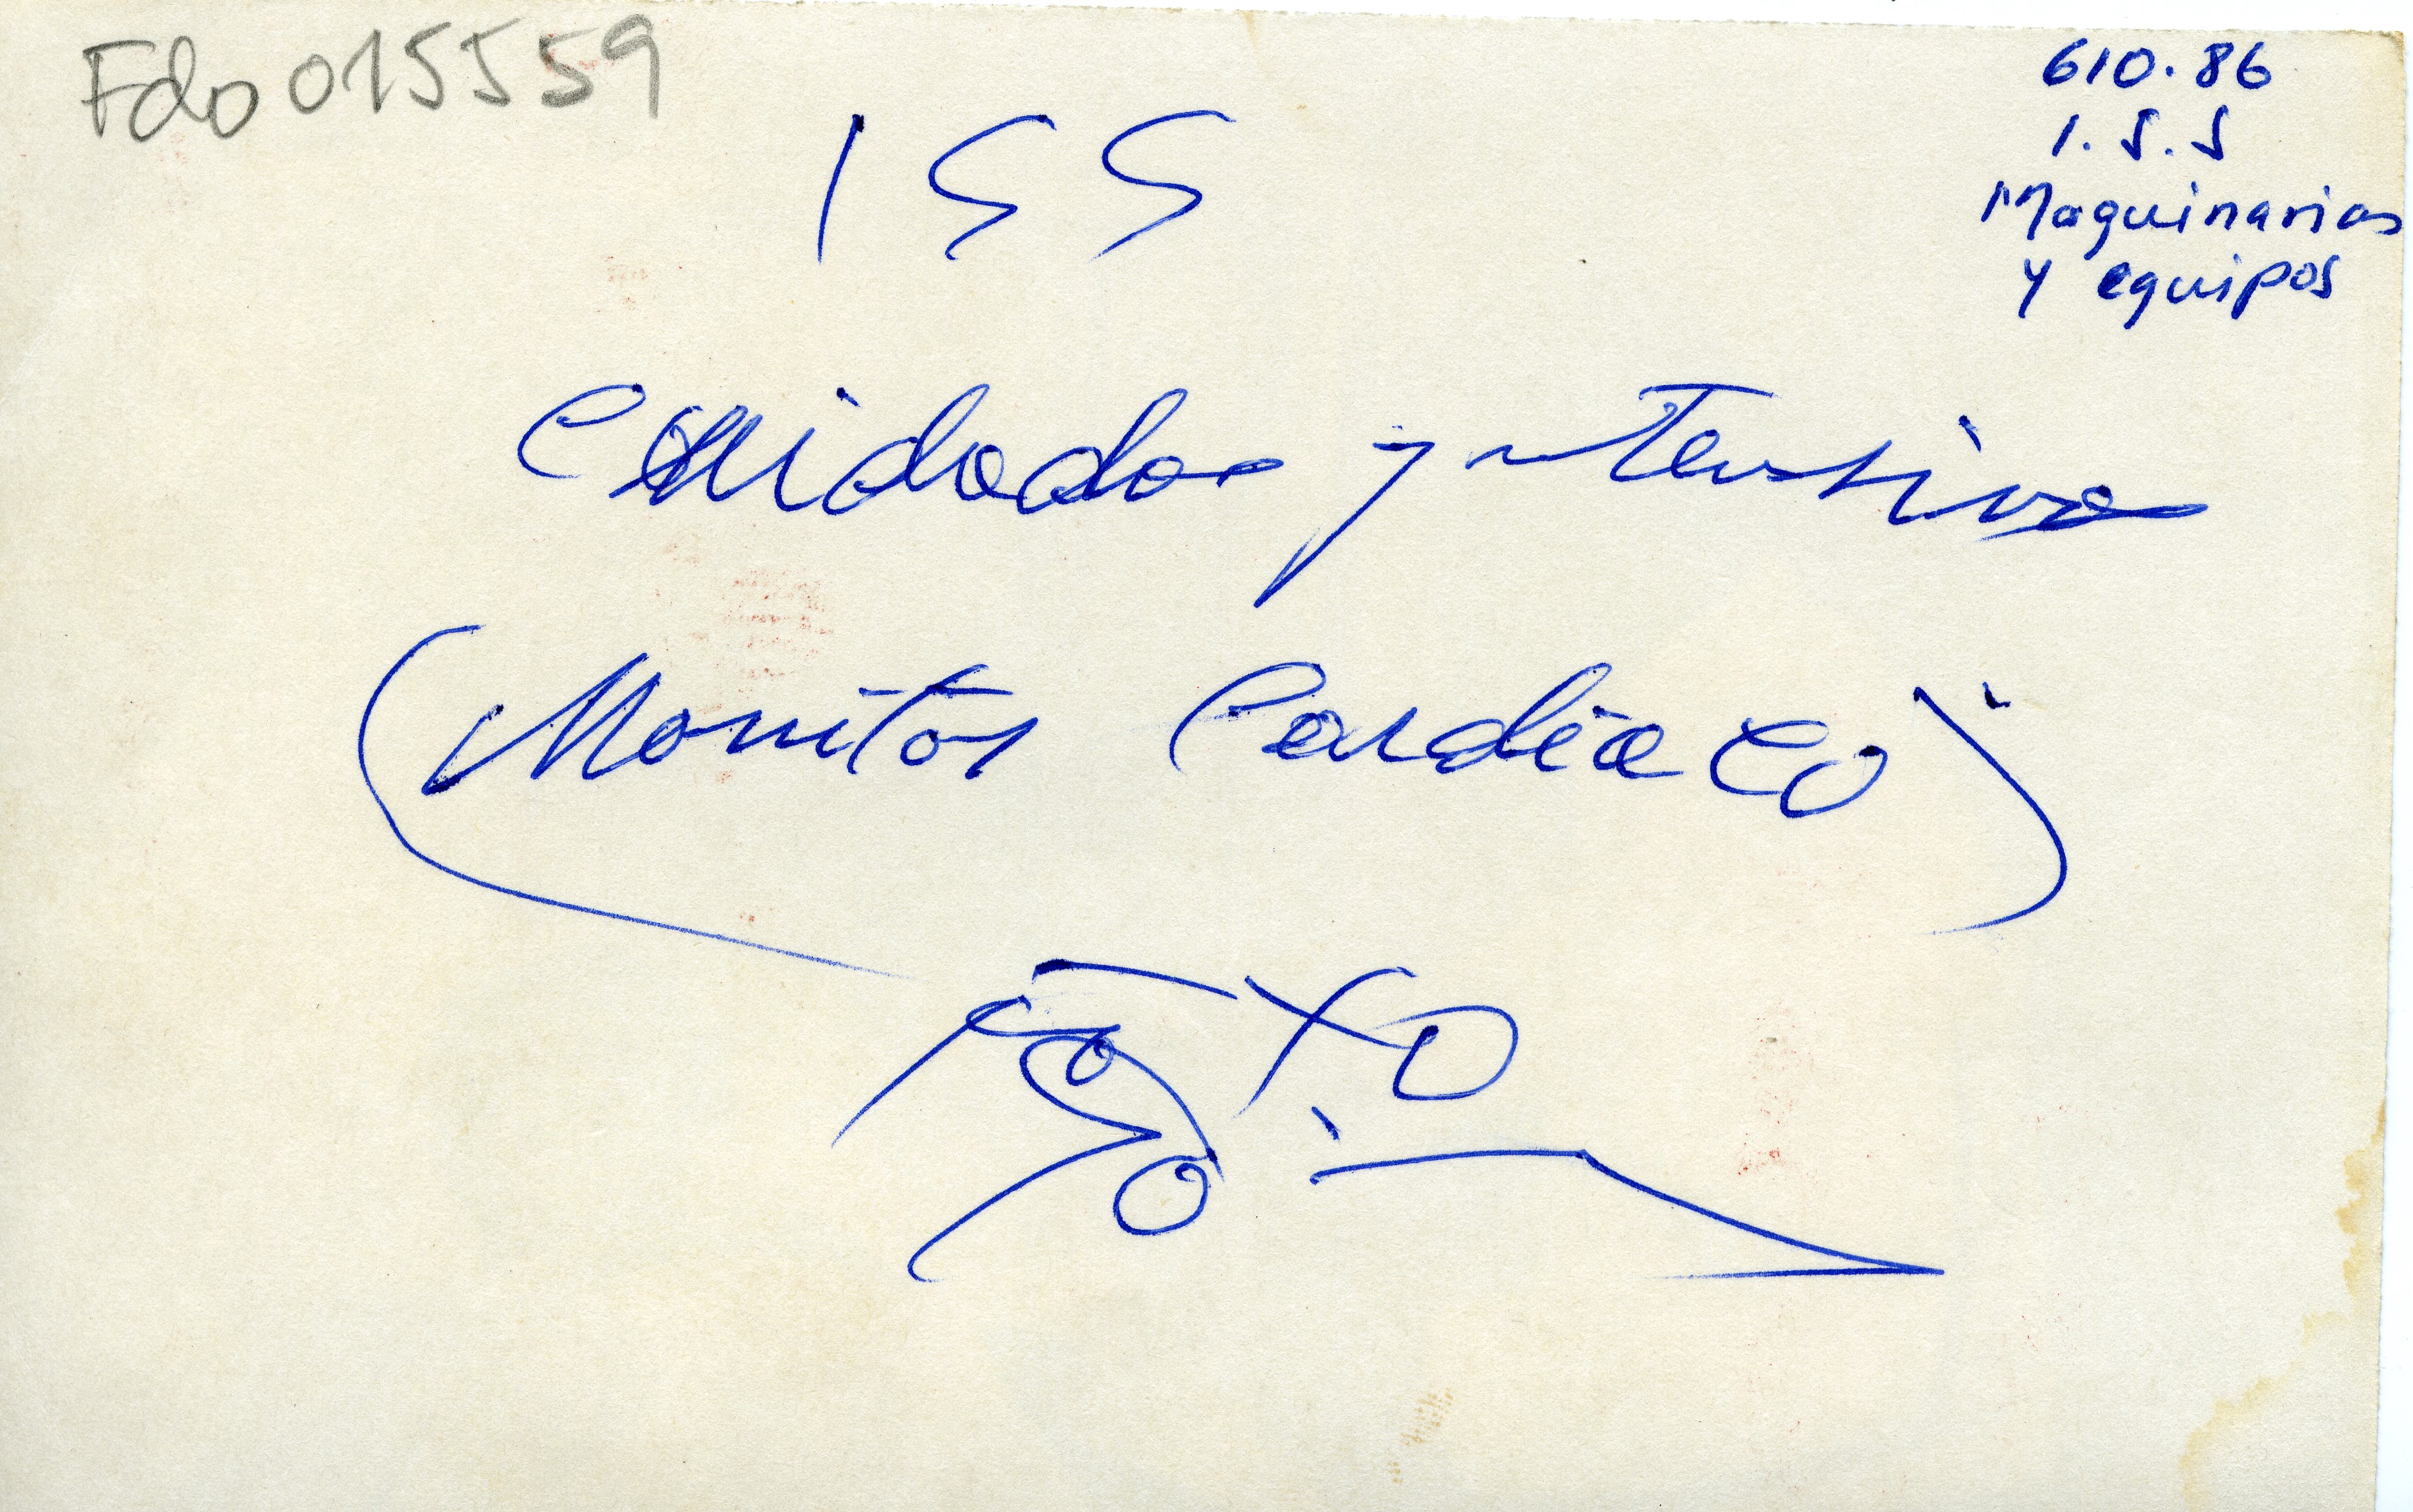 Fdo 015559
610.86
I.S.S
Maquinarias
y equipos
ISS
Cuidados yntensivo
(Monitor Cardiaco)